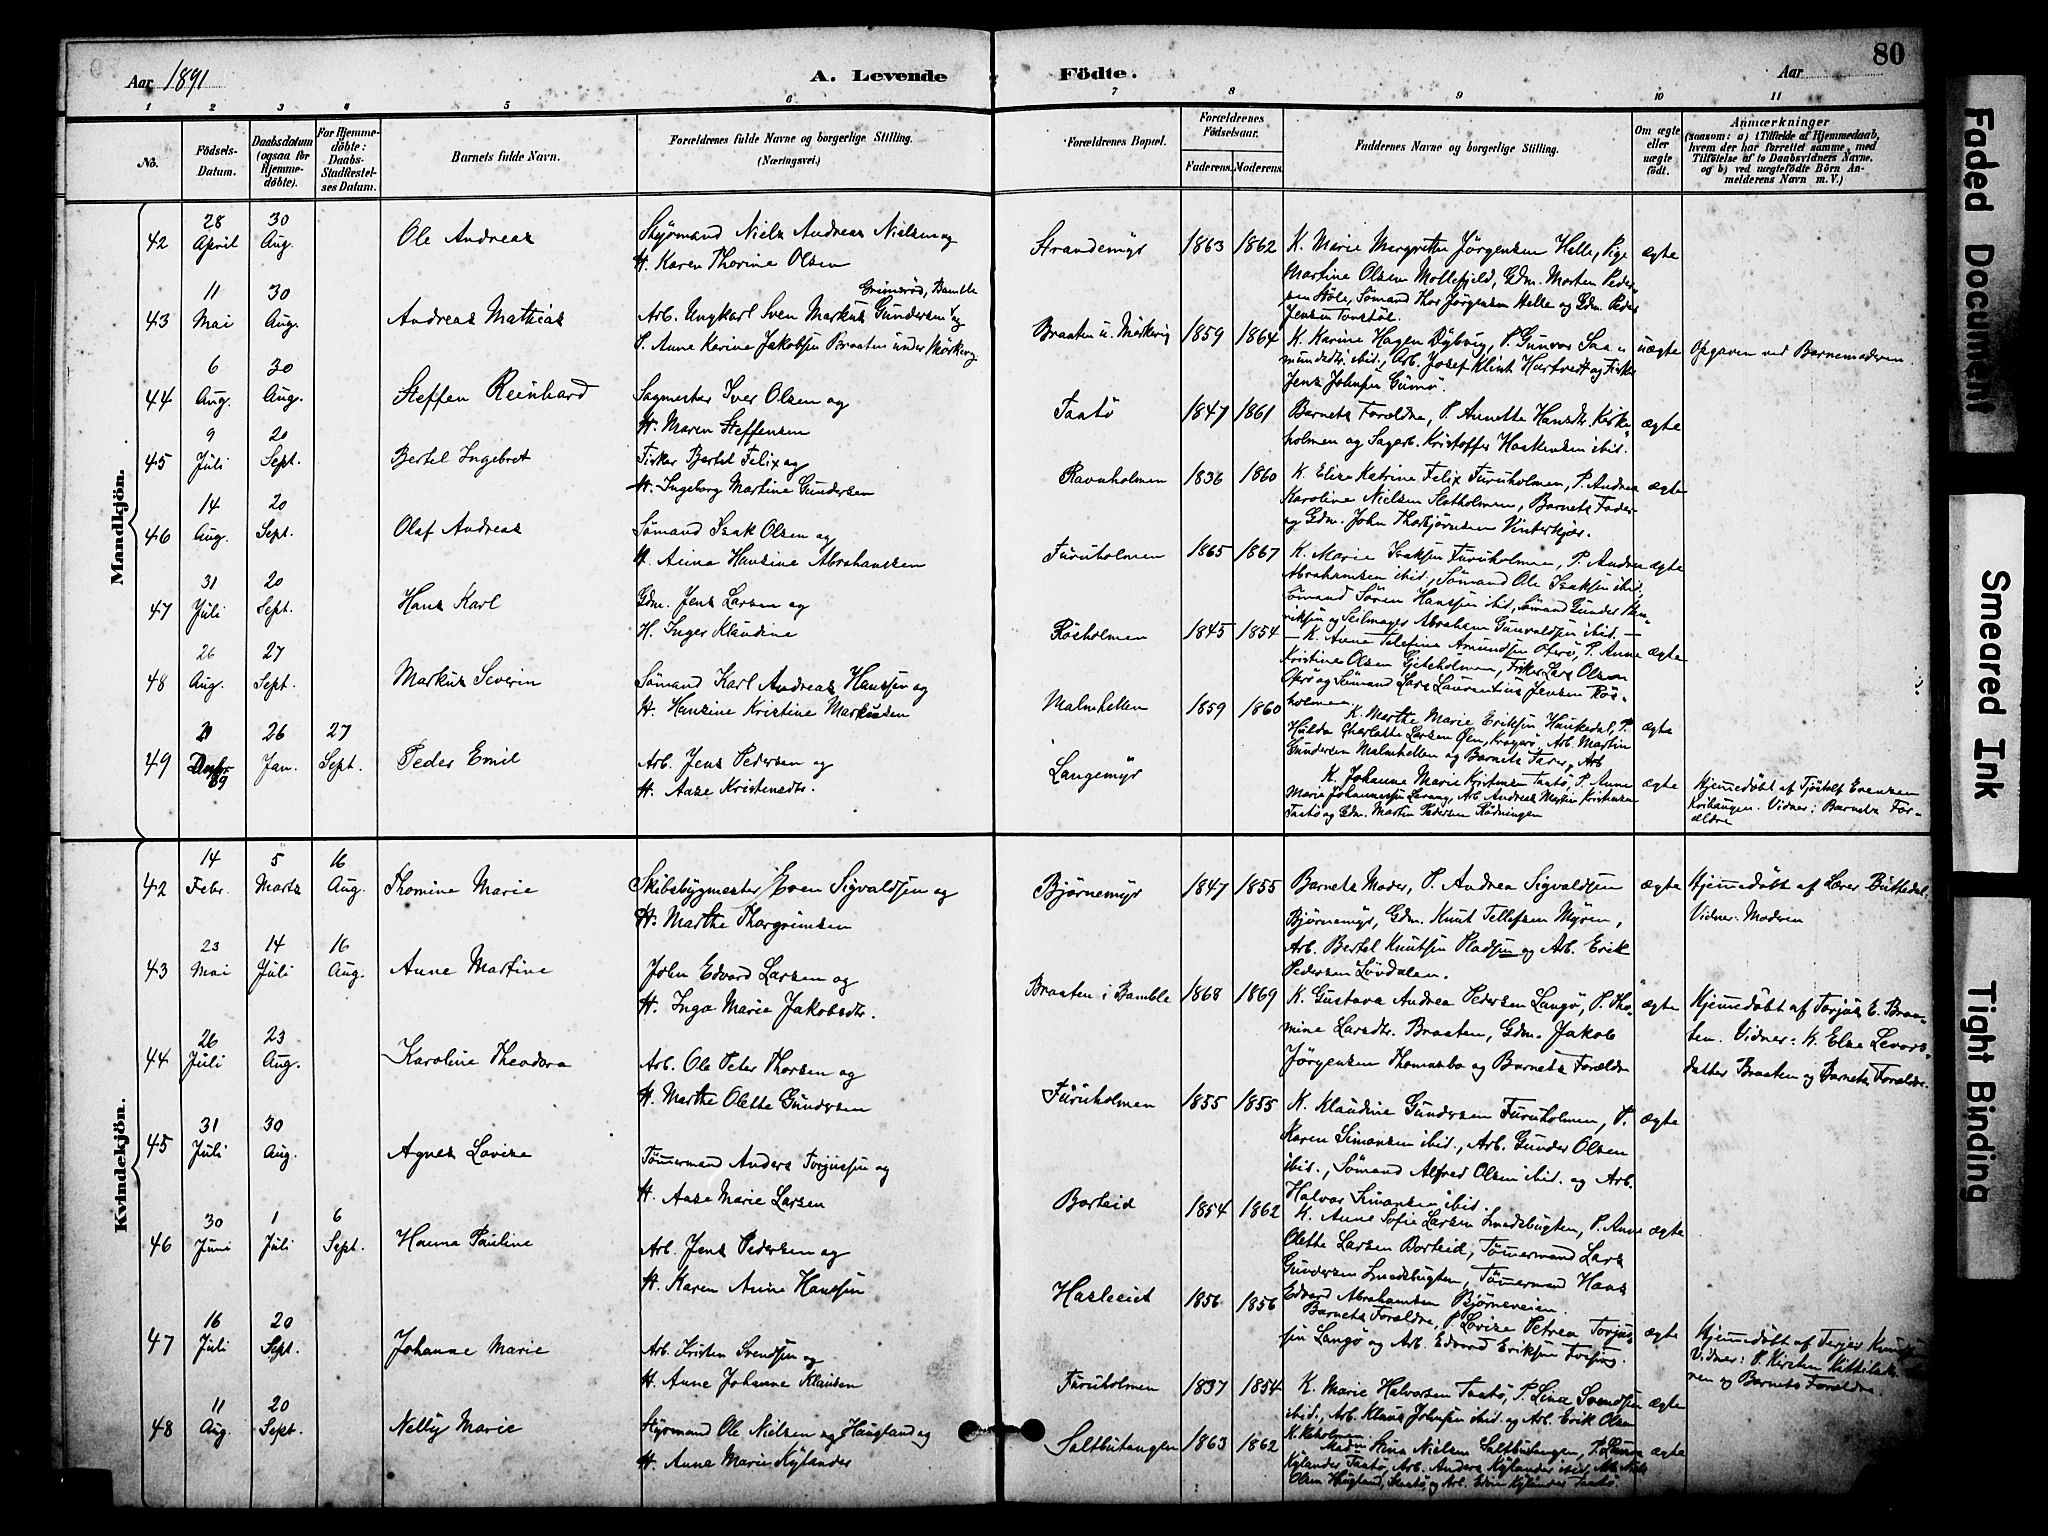 Aar 1891
A. Levende
Födte.
Aar
80
1 2 3 4 5 6 7 8 9 10 11
No.
Födsels-Datum.
Daabsdatum (ogsaa for Hjemme-døbte).
For Hjemme-döbte: Daabs-Stadfæstel-ses Datum.
Barnets fulde Navn.
Forældrenes fulde Navne og borgerlige Stilling.
(Næringsvei.)
Forældrenes Bopæl.
Forældrenes Födselsaar.
Faderens. Moderens.
Faddernes Navne og borgerlige Stilling.
Om ægte eller uægte födt.
Anmærkninger
(saasom: a) i Tilfælde af Hjemmedaab,
hvem der har forrettet samme, med
Tilföielse af to Daabsvidners Navne.
og b) ved uægtefödte Börn An-
melderens Navn m. V.)
Mandkjön.
42 28 April 30 Aug. Ole Andreas
Styrmand Niels Andreas Nielsen og
H. Karen Thorine Olsen
Strandemyr 1863 1862
K. Marie Margrethe Jørgensen Helle, Pige ægte
Martine Olsen Mollefjeld, Gdm. Morten Peder-
sen Støle, Sømand Jørgensen Helle og Gdm. Peder
Jensen
43 11 Mai 30 Aug. Andreas Mathias
Grimsrød, Bamble
Arb. Ungkarl Sven Markus Gundersen og
P. Anne Karine Jakobsen Braaten under Mörkevig
Braaten u. Mörkevig 1859 1864
K. Karine Hagen Dybvig, P. Gunvor Saa- uægte
mundsdtr. ibid., Arb. Josef Klint Hartvedt og Fisker
Jens Johnsen Gumø.
Opgaven ved Barnemoderen
44 6 Aug. 30 Aug. Steffen Reinhard
Sagmester Iver Olsen og
H. Maren Steffensen
Taatö 1847 1861
Barnets Forældre, P. Annette Hansdtr. Kirke- ægte
holmen og Sagarb. Kristoffer Haakensen ibid.
45 9 Juli 20 Sept. Bertel Ingebret
Fisker Bertel Felix og
H. Ingeborg Martine Gundersen
Ravnholmen 1836 1860
K. Elise Katrine Felix Furuholmen, P. Andrea ægte
Karoline Nielsen Slotholmen, Barnets Fader
og Gdm. John Thorbjørnsen Vinterkjær.
46 14 Aug. 20 Sept. Olaf Andreas
Sømand Isak Olsen og
H. Anna Hansine Abrahamsen
Furuholmen 1865 1867
K. Marie Isaksen Furuholmen, P. Andrea ægte
Abrahamsen ibid., Sømand Ole Isaksen ibid.,
Sømand Søren Hanssen ibid, Sømand Gunder Hen-
riksen og Seilmager Abraham Gunvaldsen ibid. —
47 31 Juli 20 Sept. Hans Karl
Gdm. Jens Larsen og
H. Inger Klaudine
Røsholmen 1845 1854
— K. Anne Amundsen Oterø, P. Anne ægte
Kristine Olsen Gjeteholmen, Fisker Lars Olsen
Oterø og Sømand Lars Laurentius Jensen Røs-
holmen
48 26 Aug. 27 Sept. Markus Severin
Sømand Karl Andreas Hanssen og
H. Hansine Kristine Markussen
Malmhellen 1859 1860
K. Marthe Marie Eriksen Haukedal, P. ægte
Hulda Charlotte Larsen Øen, Kragerø, Arb. Martin
Gundersen Malmhellen og Barnets Fader, Arb
49 89 26 Jan. 27 Sept. Peder Emil
Arb. Jens Pedersen og
H. Aase Kristensdtr.
Langemyr
K. Johanne Marie Kristensen Taatø, P. Anne ægte
Marie Johannessen Levang, Arb. Andreas Martin Kristensen
Taatø og Gdm. Martin Pedersen Rødningen
Hjemmedøbt af Tjøstolf Evensen
Kvihaugen. Vidner: Barnets For-
ældre
Kvindekjön.
42 14 Febr. 5 Marts 16 Aug. Thomine Marie
Skibsbygmester Even Sigvaldsen og
H. Marthe Thorgrimsen
Bjørnemyr 1847 1855
Barnets Moder, P. Andrea Sigvaldsen ægte
Bjørnemyr, Gdm. Knut Tellefsen Myren,
Arb. Bertel Knutsen Pladsen og Arb. Erik
Pedersen Lövdalen.
Hjemmedøbt af Lærer Buttedal.
Vidner: Moderen
43 23 Mai 14 Juli 16 Aug. Anne Martine
John Edvard Larsen og
H. Inga Marie Jakobsdtr.
Braaten i Bamble 1868 1869
K. Gustava Andrea Pedersen Langø, P. Tho- ægte
mine Larsdtr. Braaten, Gdm. Jakob
Jørgensen Thomasbo og Barnets Forældre
Hjemmedøbt af Torjus E. Braa-
ten. Vidner: K. Else Levors-
datter Braaten og Barnets Forældre.
44 26 Juli 23 Aug. Karoline Theodora
Arb. Ole Peter Thorsen og
H. Marthe Olette Gundersen
Furuholmen 1855 1855
K. Klaudine Gundersen Furuholmen, P. ægte
Karen Simonsen ibid., Arb. Gunder Olsen
ibid., Sømand Alfred Olsen ibid. og Arb.
Halvor Simonsen ibid.
45 31 Juli 30 Aug. Agnes Lovise
Tømmermand Anders Torjussen og
H. Aase Marie Larsen
Borteid 1854 1862
K. Anne Sofie Larsen Smedsbugten, P. Anne ægte
Olette Larsen Borteid, Tømmermand Lars
Gundersen Smedsbugten, Tømmermand Hans
Edvard Abrahamsen Bjørneveien.
46 30 Juni 1 Juli 6 Sept. Hanna Pauline
Arb. Jens Pedersen og
H. Karen Anne Hanssen
Hasleeid 1856 1856
Barnets Forældre, P. Lovise Petrea Torjus- ægte
sen Langø og Arb. Edvard Eriksen
Hjemmedøbt af Terjer
Vidner: P. Kirsten
nen og Barnets Forældre.
47 16 Juli 20 Sept. Johanne Marie
Arb. Kristen Svendsen og
H. Anne Johanne Klausen
Furuholmen 1837 1854
K. Marie Halvorsen Taatø, P. Lina Svendsen ægte
ibid., Arb. Klaus Johnsen ibid. og Arb. Erik Olsen
48 11 Aug. 20 Sept. Nelly Marie
Styrmand Ole Nielsen og Haugland og
H. Anna Marie Kylander
Saltbutangen 1863 1862
Nielsen Saltbutangen, P. Laura ægte
Kylander Taatø, Arb. Anders Kylander ibid.
Olsen Haugland, Skaatø og Arb. Kylander Taatø.
Faded Document
Smeared Ink
Tight Binding